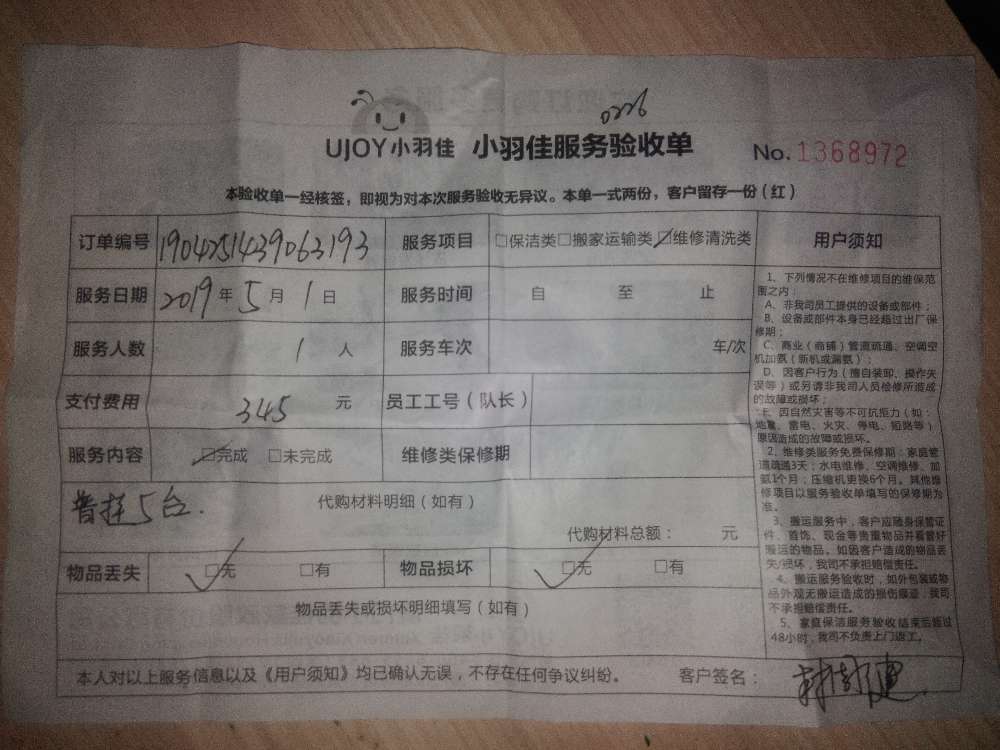 0226
UJOY小羽佳 小羽佳服务验收单 No. 1368972
本验收单一经核签，即视为对本次服务验收无异议。本单一式两份，客户留存一份（红）
订单编号 1904251439063193 服务项目 □保洁类□搬家运输类☑维修清洗类
服务日期 2019年5月1日 服务时间 自 至 止
服务人数 1人 服务车次 车/次
支付费用 345 元 员工工号（队长）
服务内容 ☑完成 □未完成 维修类保修期
普挂5台. 代购材料明细（如有）
代购材料总额： 元
物品丢失 ☑无 □有 物品损坏 ☑无 □有
物品丢失或损坏明细填写（如有）
本人对以上服务信息以及《用户须知》均已确认无误，不存在任何争议纠纷。 客户签名：
用户须知
1、下列情况不在维修项目的维保范
围之内：
A、非我司员工提供的设备或部件；
B、设备或部件本身已经超过出厂保
修期；
C、商业（商铺）管道疏通、空调空
机加氨（新机或漏氨）；
D、因客户行为（擅自装卸、操作失
误等）或另请非我司人员检修所造成
的故障或损坏；
E、因自然灾害等不可抗拒力（如：
地震、雷电、火灾、停电、短路等）
原因造成的故障或损坏。
2、维修类服务免费保修期：家庭管
道疏通3天；水电维修、空调维修、加
氨1个月；压缩机更换6个月。其他维
修项目以服务验收单填写的保修期为
准。
3、搬运服务中，客户应随身保管证
件、首饰、现金等贵重物品并看管好
搬运的物品，如因客户造成的物品丢
失/损坏，我司不承担赔偿责任。
4、搬运服务验收时，如外包装或物
品外观无搬运造成的损伤痕迹，我司
不承担赔偿责任。
5、家庭保洁服务验收结束后超过
48小时，我司不负责上门返工。